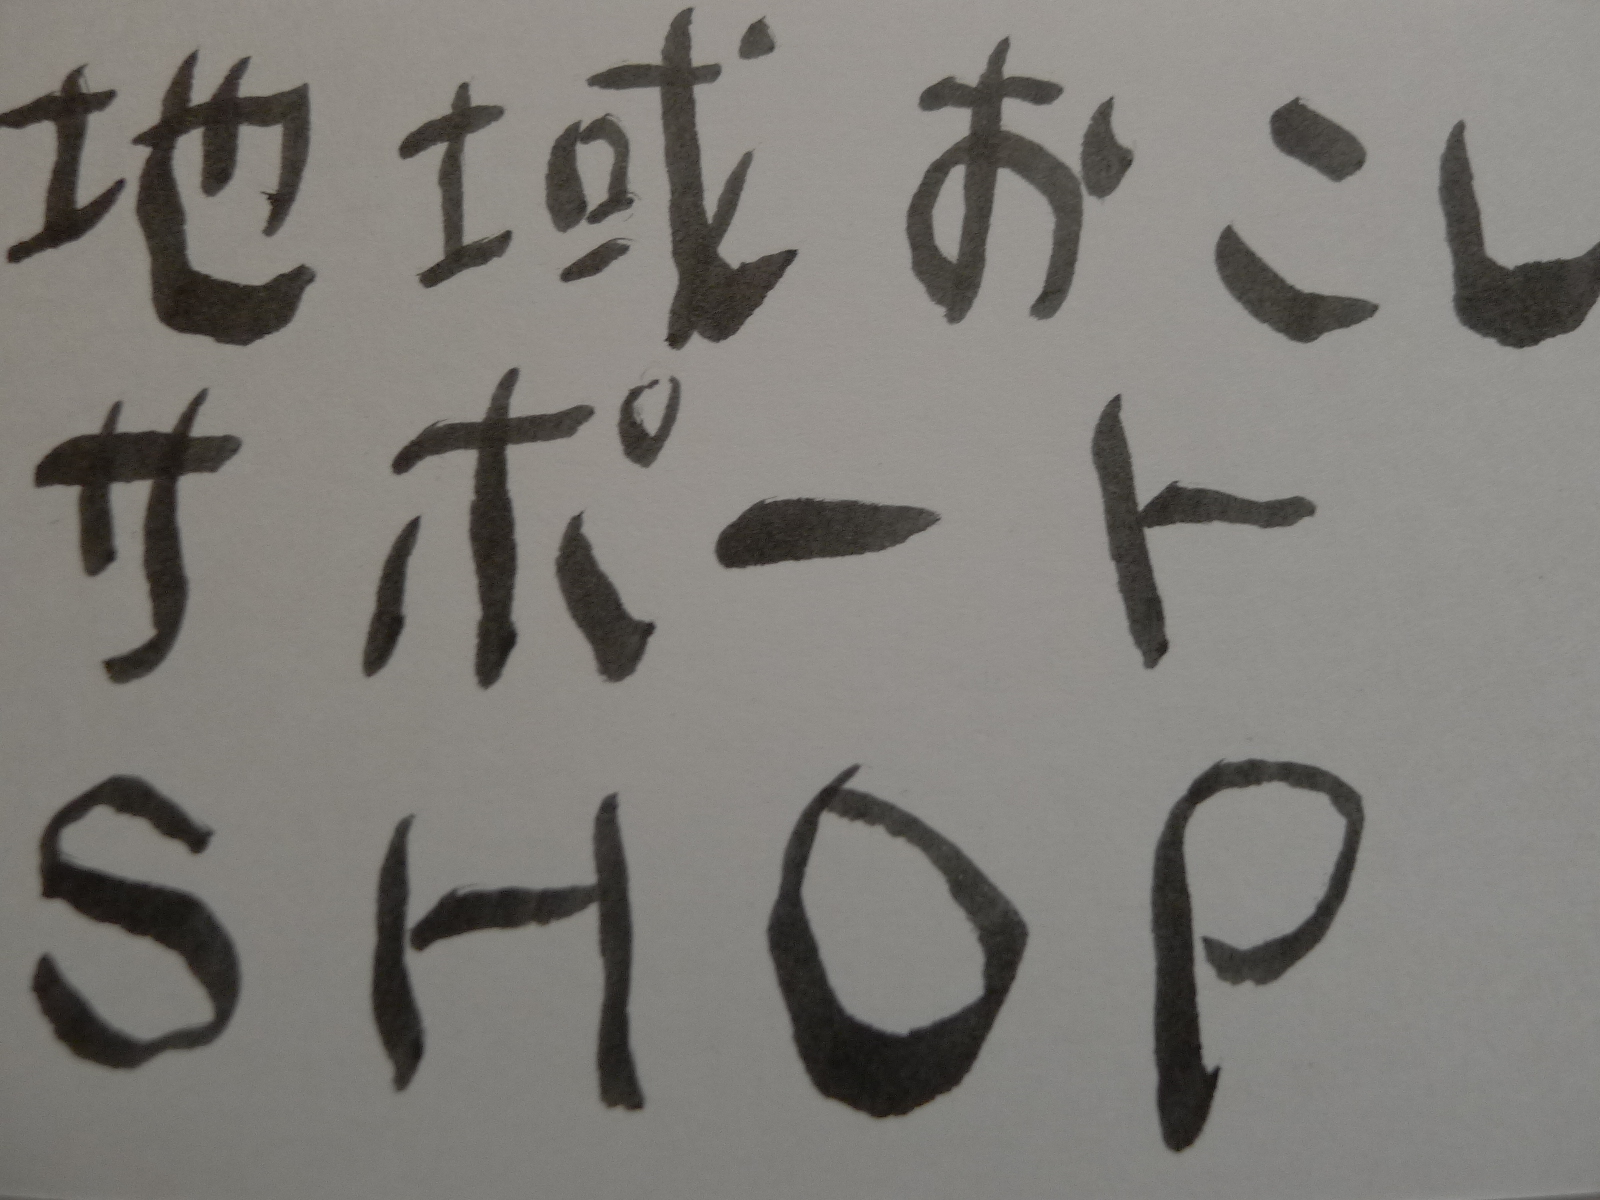 地域おこし
サポート
SHOP